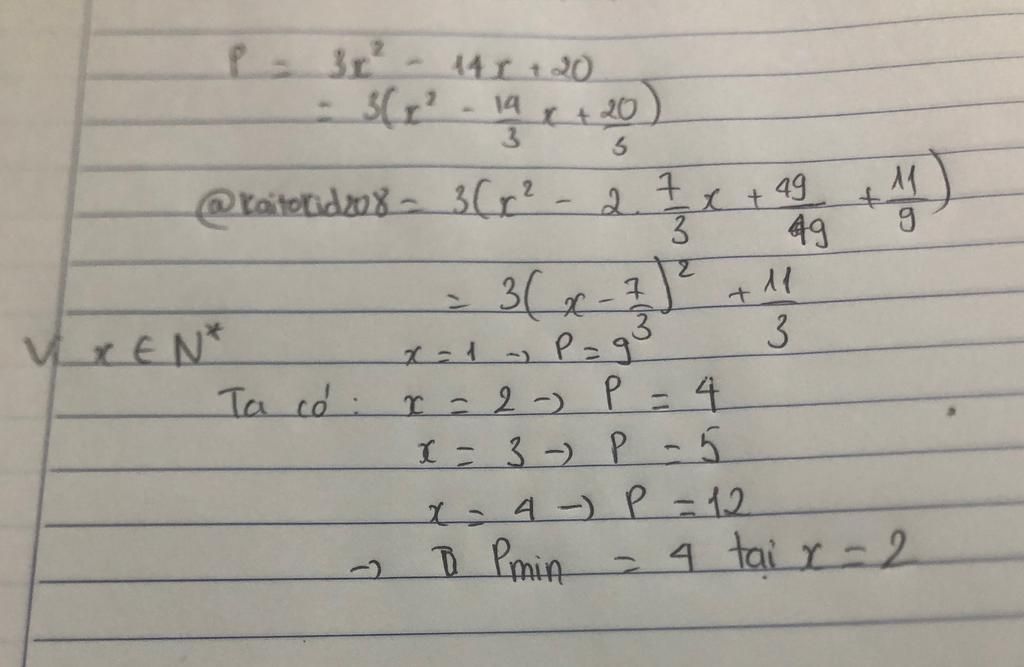 P = 3x² - 14x + 20
= 3(x² - 14/3 x + 20/3)
@kaitokid208 = 3(x² - 2. 7/3 x + 49/9 + 11/9)
= 3(x - 7/3)² + 11/3
∀ x ∈ N* x = 1 → P = 9
Ta có : x = 2 → P = 4
x = 3 → P = 5
x = 4 → P = 12
→ Pmin = 4 tại x = 2